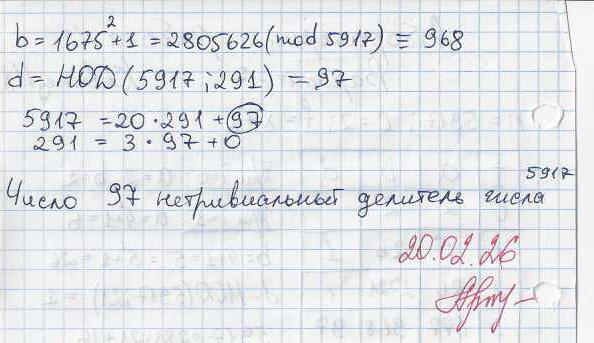 b = 1675²+1 = 2805626(mod 5917) ≡ 968
d = НОД(5917;291) = 97
5917 = 20·291+97
291 = 3·97+0
Число 97 нетривиальный делитель числа 5917
20.02.26